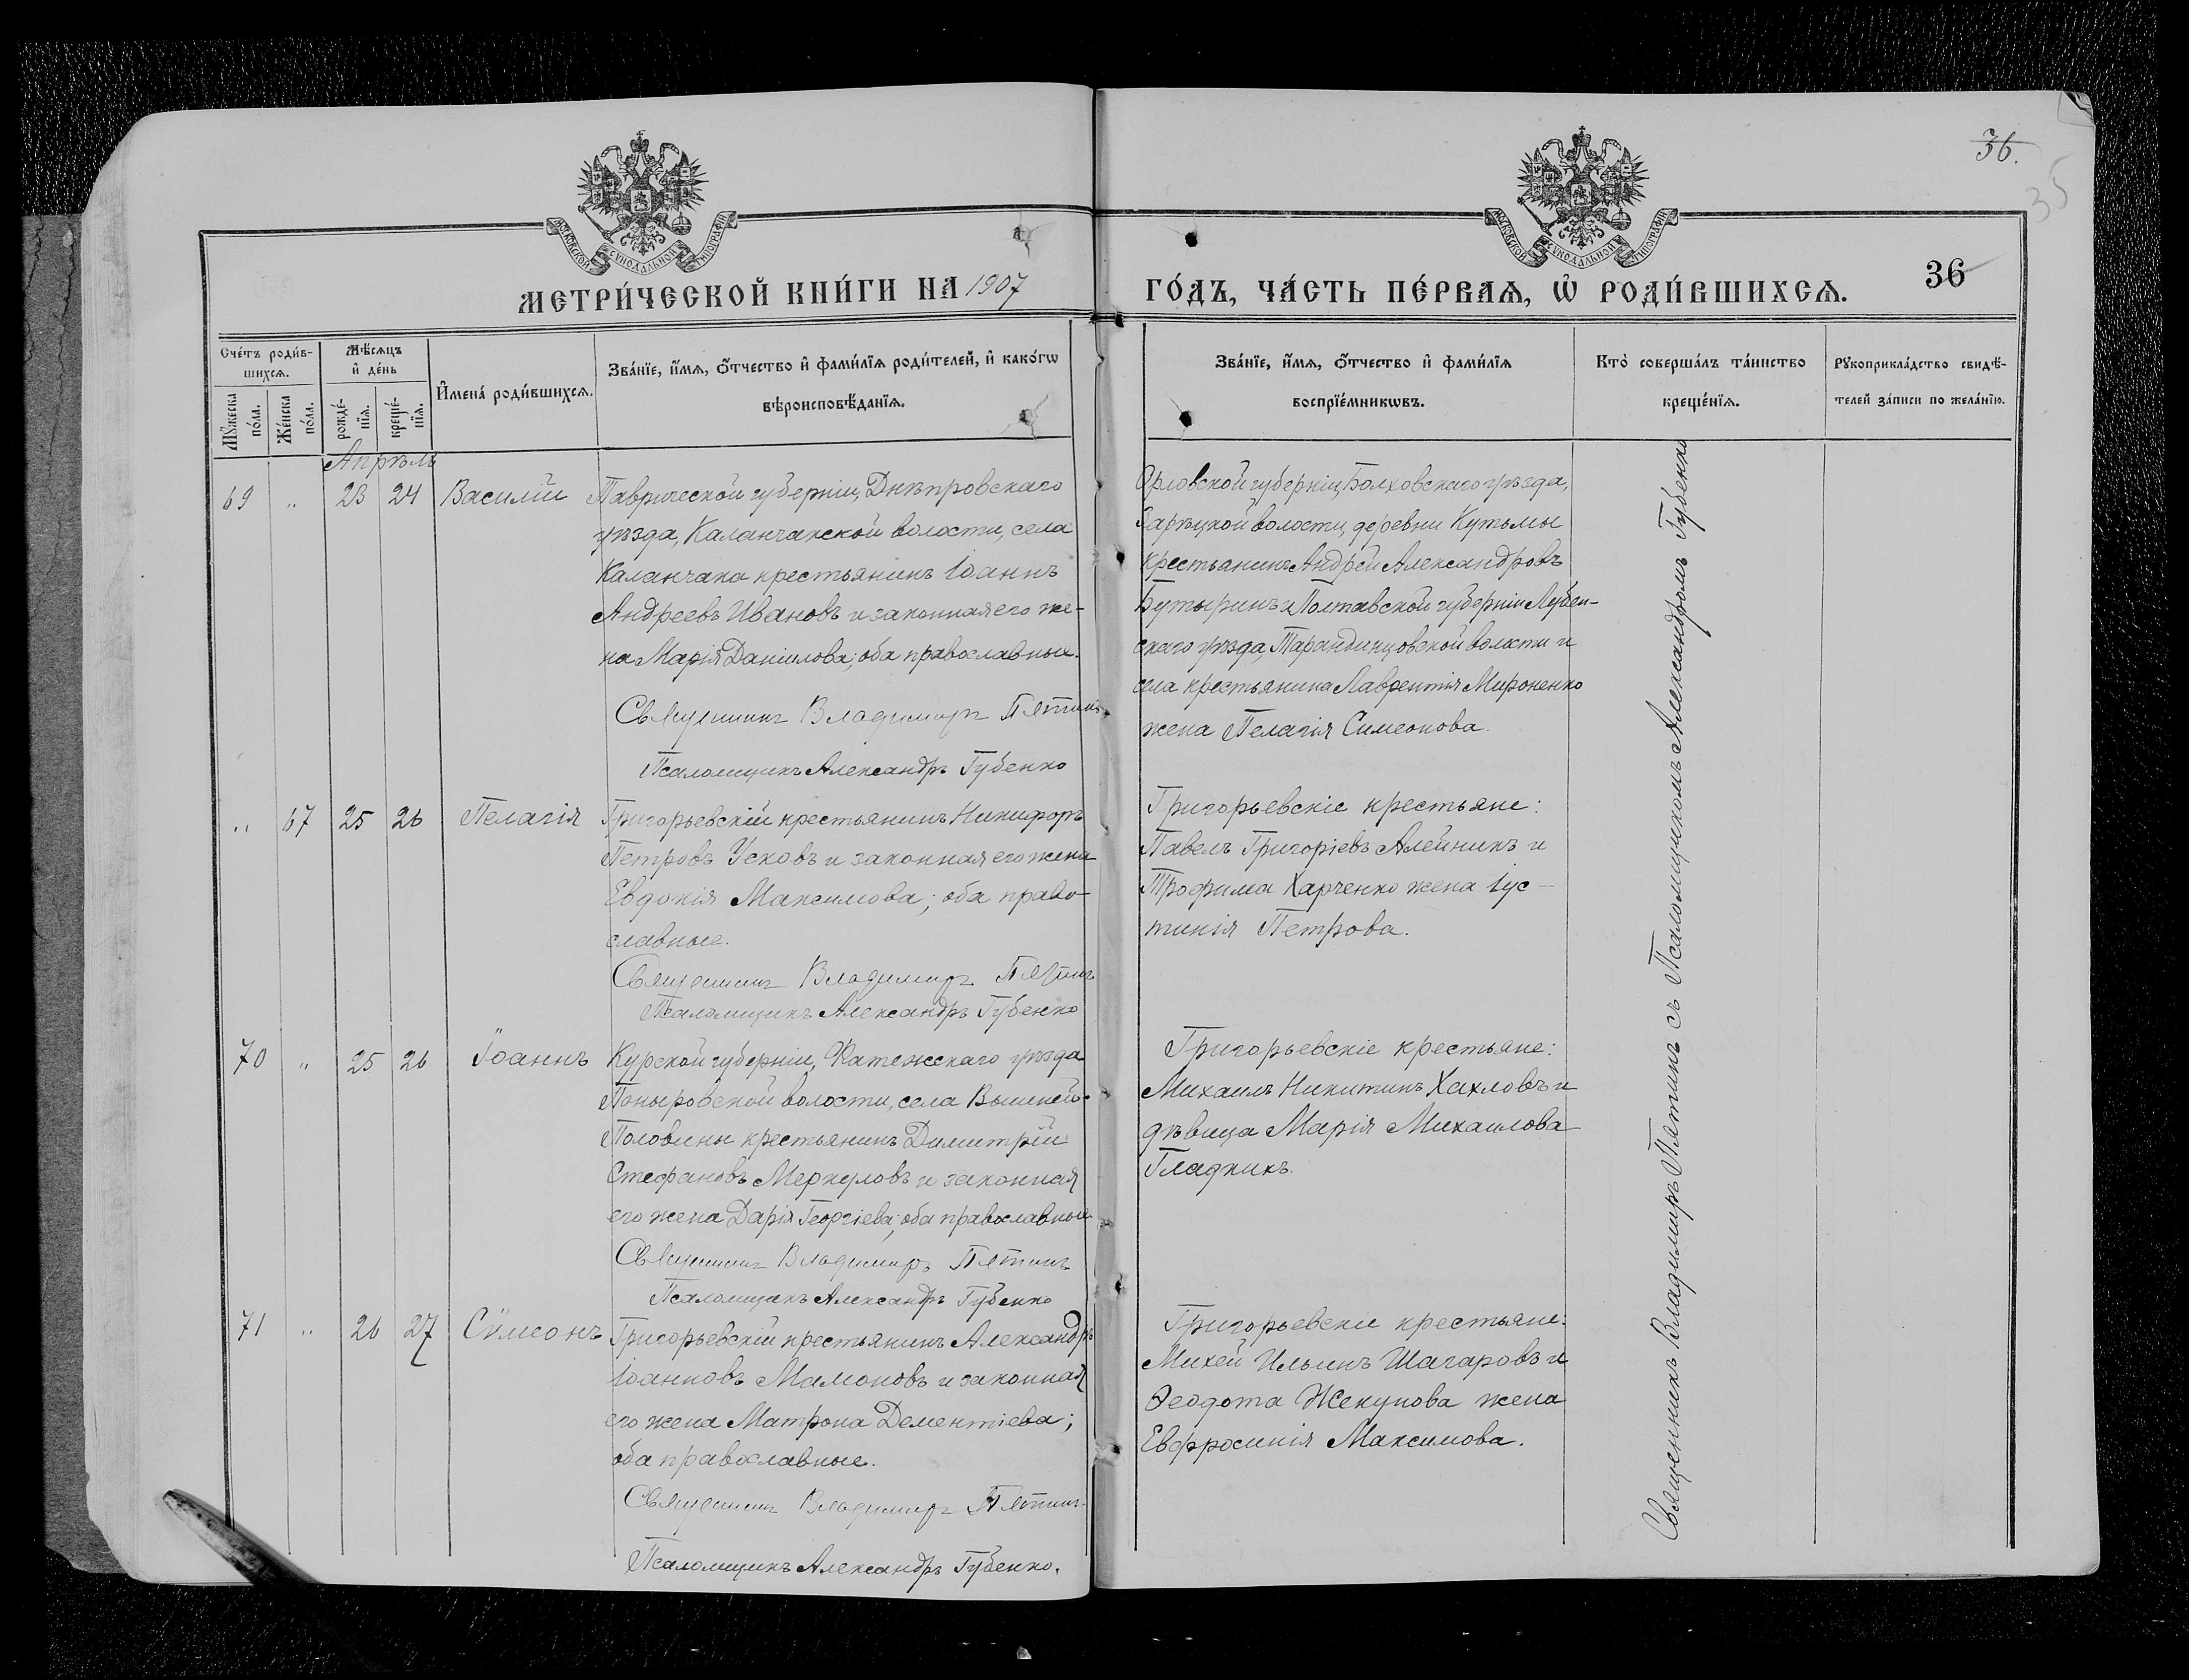 36.
35
МОСКОВСКОЙ СѴНОДАЛЬНОЙ ТИПОГРАФІИ
МОСКОВСКОЙ СѴНОДАЛЬНОЙ ТИПОГРАФІИ
МЕТРИ́ЧЕСКОЙ КНИ́ГИ НА 1907
ГО́ДЪ, ЧА́СТЬ ПЕ́РВАѦ, Ѡ҆ РОДИ́ВШИХСѦ.
36
Сче́тъ роди́в-
шихсѧ.
Мꙋ́жеска по́ла.
Же́нска по́ла.
Мѣ́сѧцъ
и҆ де́нь
рожде́-
нїѧ.
креще́-
нїѧ.
И҆мена̀ роди́вшихсѧ.
Зва́нїе, и҆́мѧ, ѻ҆́тчество и҆ фами́лїѧ роди́телей, и҆ како́гѡ
вѣроисповѣ́данїѧ.
Зва́нїе, и҆́мѧ, ѻ҆́тчество и҆ фами́лїѧ
воспрїе́мникѡвъ.
Кто̀ соверша́лъ та́инство
креще́нїѧ.
Рꙋкоприкла́дство свидѣ́-
телей за́писи по жела́нїю.
Апрѣль
69 " 23 24 Василій
Таврической губерніи, Днѣпровскаго
уѣзда, Каланчакской волости, села
Каланчака крестьянинъ Іоаннъ
Андреевъ Ивановъ и законная его же-
на Марія Даніилова; оба православные.
Священникъ Владимиръ Пятинъ
Псаломщикъ Александръ Губенко
Орловской губерніи, Болховскаго уѣзда,
Зарѣцкой волости, деревни Кутьмы
крестьянинъ Андрей Александровъ
Бутыринъ и Полтавской губерніи Лубен-
скаго уѣзда, Тарандинцовской волости и
села крестьянина Лаврентія Мироненко
жена Пелагія Симеонова.
" 67 25 26 Пелагія
Григорьевскій крестьянинъ Никифоръ
Петровъ Усковъ и законная его жена
Евдокія Максимова; оба право-
славные.
Священникъ Владимиръ Пятинъ
Псаломщикъ Александръ Губенко
Григорьевскіе крестьяне:
Павелъ Григоріевъ Алейникъ и
Трофима Харченко жена Іус-
тинія Петрова.
70 " 25 26 Іоаннъ
Курской губерніи, Фатежскаго уѣзда
Поныровской волости, села Вышней-
Половины крестьянинъ Димитрій
Стефановъ Меркуловъ и законная
его жена Дарія Георгіева; оба православные
Священникъ Владимиръ Пятинъ
Псаломщикъ Александръ Губенко
Григорьевскіе крестьяне:
Михаилъ Никитинъ Хахловъ и
дѣвица Марія Михаилова
Гладкихъ.
71 " 26 27 Сѵмеонъ
Григорьевскій крестьянинъ Александръ
Іоанновъ Мамоновъ и законная
его жена Матрона Дементіева;
оба православные.
Священникъ Владимиръ Пятинъ
Псаломщикъ Александръ Губенко.
Григорьевскіе крестьяне:
Михей Ильинъ Шагаровъ и
Ѳеодота Жекунова жена
Евфросинія Максимова.
Священникъ Владимиръ Пятинъ съ Псаломщикомъ Александромъ Губенко